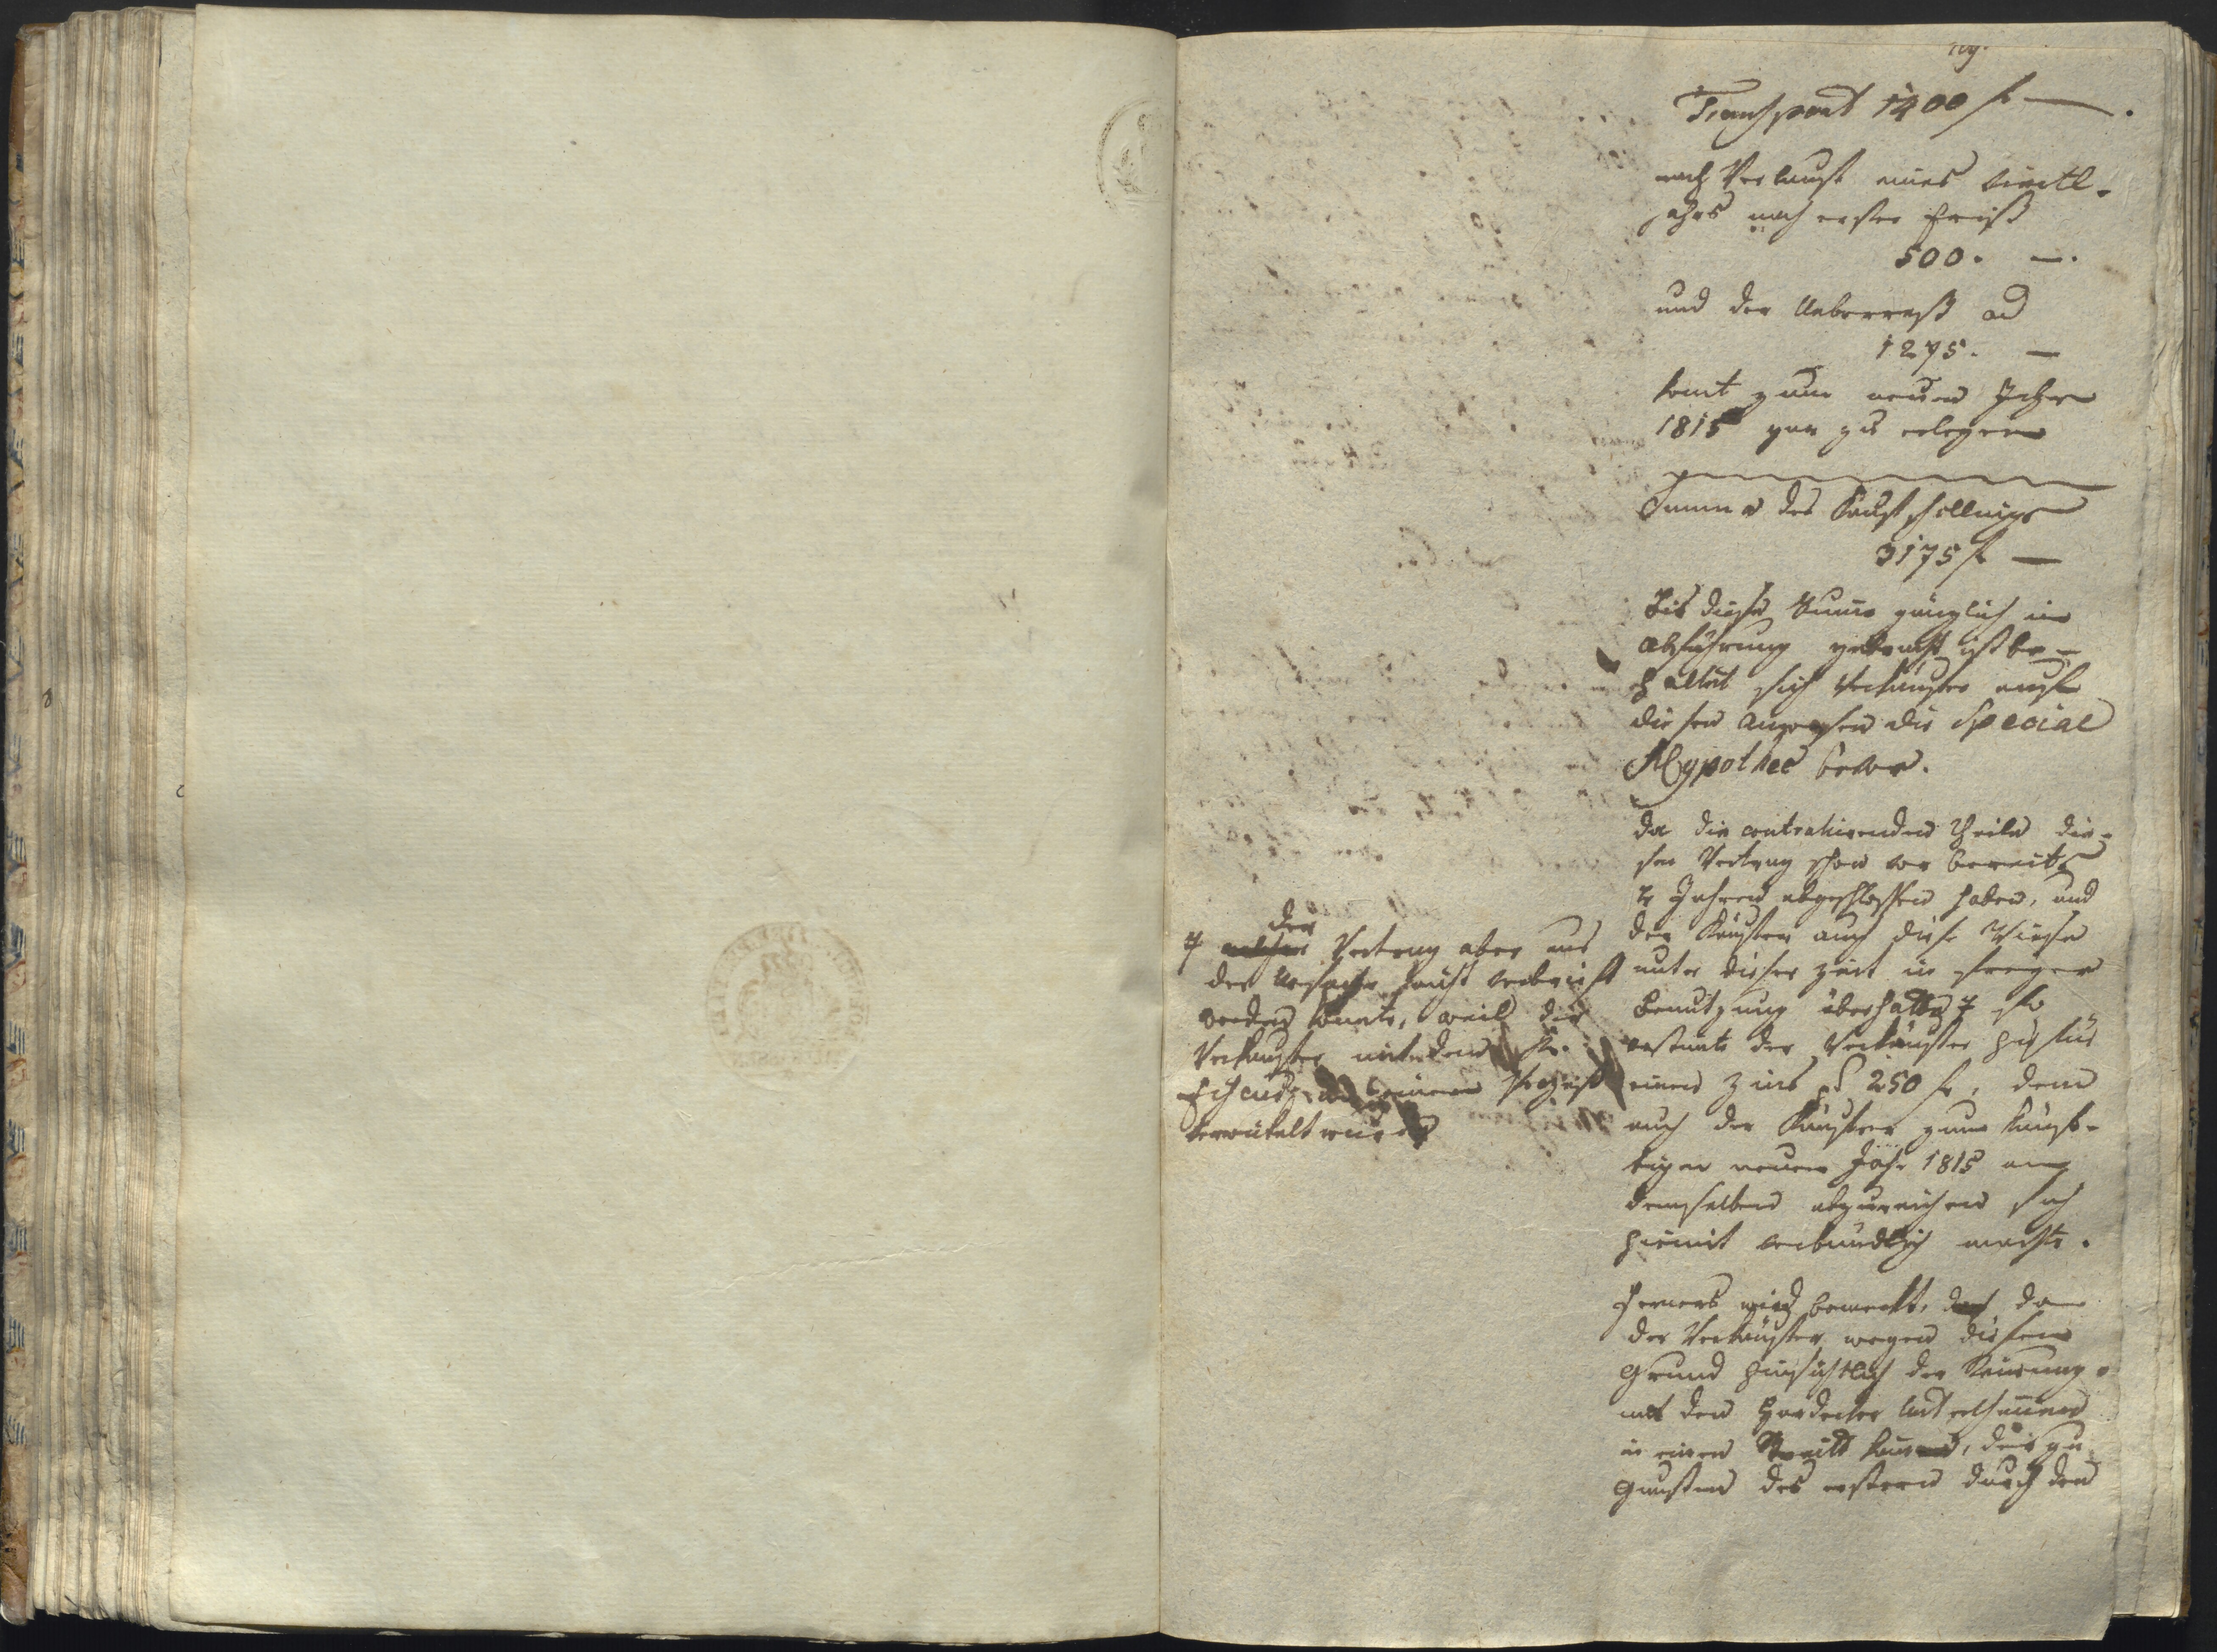 Transport 1400 f —.
nach Verlauf eines Viertl-
jahrs nach erster Frist
500. —.
und der Ueberrest ad
1275. —
komt zum neuen Jahr
1815 zu erlegen
Summa des Kaufschillings
3175 f —
Bis diese Summe gänzlich in
Abführung gebracht ist be-
haltet sich Verkäufer auf
diesen Anwesen die Special
Hypothec bevor.
Da die contrahirenden Theile die-
sen Vertrag schon vor bereits
2 Jahren abgeschlossen haben, und
der Käufer auch diese Wiese
unter dieser Zeit in freyer
Benutzung überhatte so
der Verkäufer hiefür
einen Zins pr 250 f, dem
auch der Käufer zum künf-
tigen neuen Jahr 1815 an
demselben abzureichen sich
hiemit verbindlich machte.
Ferners wird bemerkt, daß da
der Verkäufer wegen diesem
Grund hinsichtlich der
mit den Unterthanen
in einen Streitt kam, der zu
Gunsten des erstern durch den
der
Vertrag aber aus
der Ursache nicht verbrieft
werden konnte, weil der
Verkäufer mit dem K.
Fiscus in einem Prozeß
verwikelt war